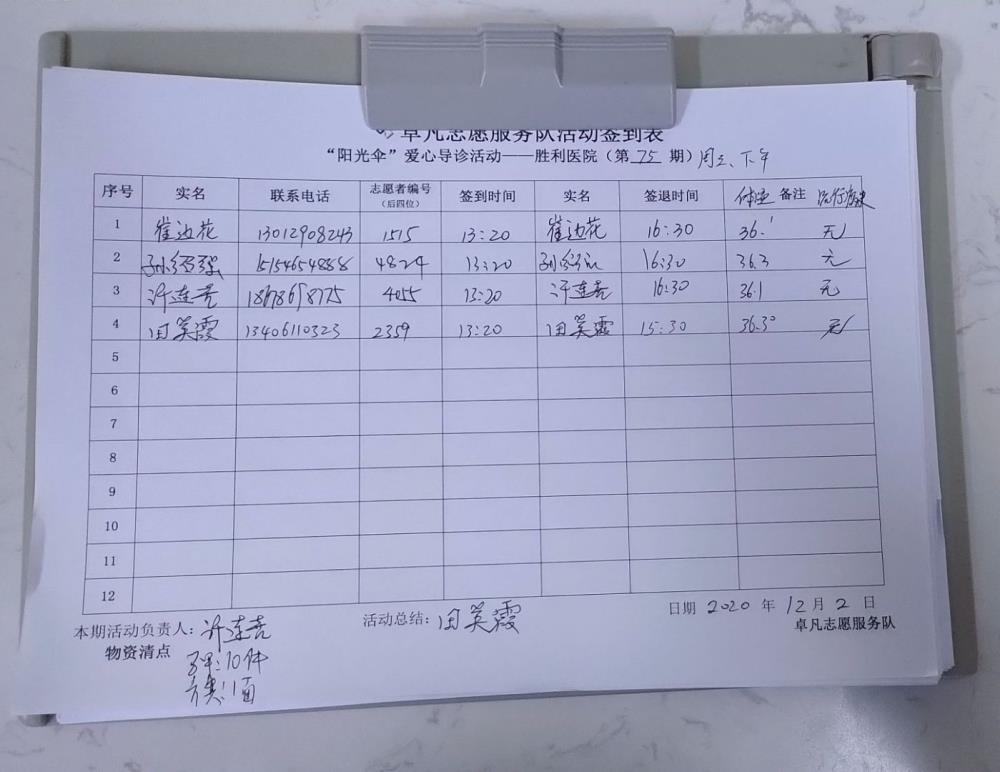 卓凡志愿服务队活动签到表
“阳光伞”爱心导诊活动——胜利医院（第 75 期）周三、下午
序号 实名 联系电话 志愿者编号（后四位） 签到时间 实名 签退时间 体温 备注 流行病史
1 崔边花 13012908243 1515 13:20 崔边花 16:30 36.1 无
2 孙 15154654888 4824 13:20 孙 16:30 36.3 无
3 许连吉 18678698775 4055 13:20 许连吉 16:30 36.1 无
4 田英霞 13406110323 2359 13:20 田英霞 15:30 36.3° 无
5
6
7
8
9
10
11
12
本期活动负责人：许连吉 活动总结：田英霞 日期 2020 年 12 月 2 日
物资清点 卓凡志愿服务队
马甲：10件
：1面